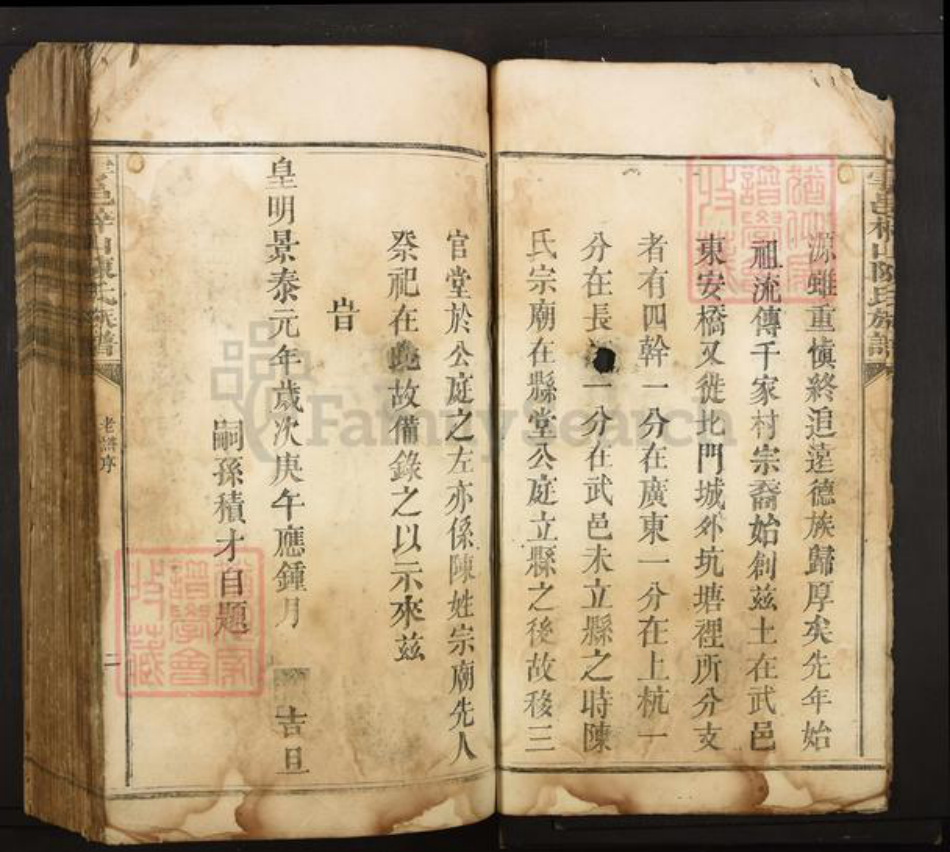 源雖重愼終追遠德族歸厚矣先年始
祖流傳千家村宗裔始創茲土在武邑
東安橋又從北門城外坑塘裡所分支
者有四幹一分在廣東一分在上杭一
分在長一分在武邑未立縣之時陳
氏宗廟在縣堂公庭立縣之後故移三
官堂於公庭之左亦係陳姓宗廟先人
祭祀在晚故備錄之以示來茲
旹
皇明景泰元年歲次庚午應鍾月 吉旦
嗣孫積才自題
山陳氏族譜
老譜序
二
FamilySearch